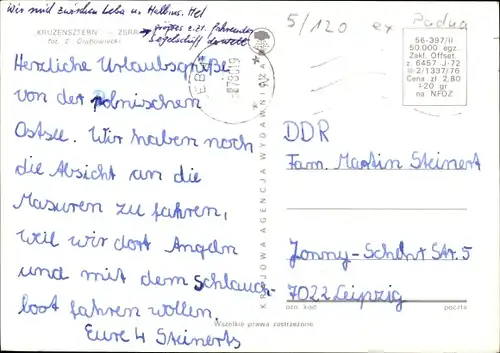 Wir sind zwischen Leba u. Hel
KRUZENSZTERN
fot. Z. Grabowiecki
größtes z.Zt. fahrendes
Segelschiff der Welt
5/120 ex Padua
56-397/II
50.000 egz.
Zakł. Offset.
z 6457 J-72
III-2/1337/76
Cena zł. 2,80
+20 gr
na NFOZ
Herzliche Urlaubsgrüße
von der polnischen
Ostsee. Wir haben noch
die Absicht an die
Masuren zu fahren,
weil wir dort Angeln
und mit dem Schlauch-
boot fahren wollen.
Eure 4 Steinerts
KRAJOWA AGENCJA WYDAWNICZA
DDR
Fam. Martin Steinert
Jonny-Schehr Str. 5
7022 Leipzig
ozn. kod poczta
Wszelkie prawa zastrzeżone